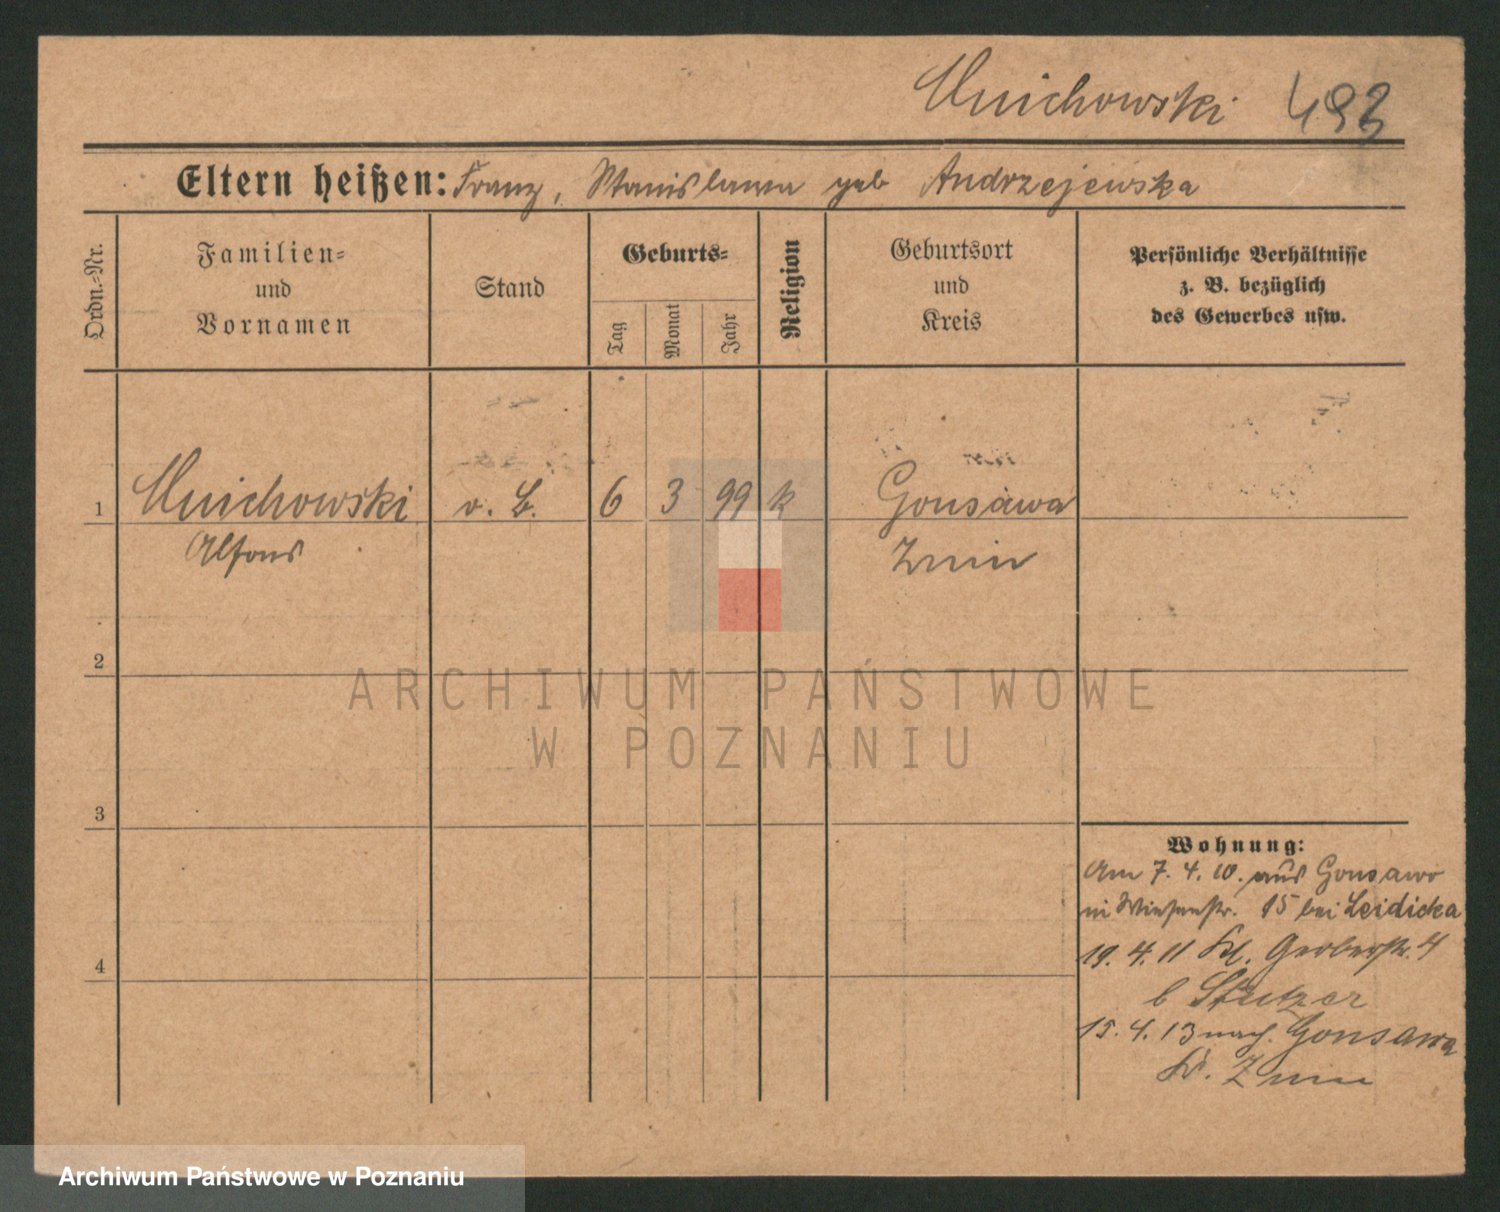 Mnichowski 493
Eltern heißen: Franz, Stanislawa geb Andrzejewska
Ordn.-Nr.
Familien-
und
Vornamen
Stand
Geburts-
Tag
Monat
Jahr
Religion
Geburtsort
und
Kreis
Persönliche Verhältnisse
z. B. bezüglich
des Gewerbes usw.
1 Mnichowski o. B. 6 3 99 k Gonsawa
Alfons Znin
2
3
4
Wohnung:
Am 7. 4. 10. aus Gonsawo
in Wiesenstr. 15 bei Leidicka
19. 4. 11 Kl. Gerberstr. 4
b Stutzer
15. 4. 13 nach Gonsawa
Kr. Znin
ARCHIWUM PAŃSTWOWE
W POZNANIU
Archiwum Państwowe w Poznaniu